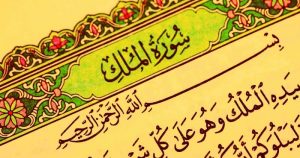 سُورَةُ المُلْكِ
بِسْمِ اللَّهِ الرَّحْمَنِ الرَّحِيمِ
بِيَدِهِ الْمُلْكُ وَهُوَ عَلَى كُلِّ
لِيَبْلُوَكُمْ